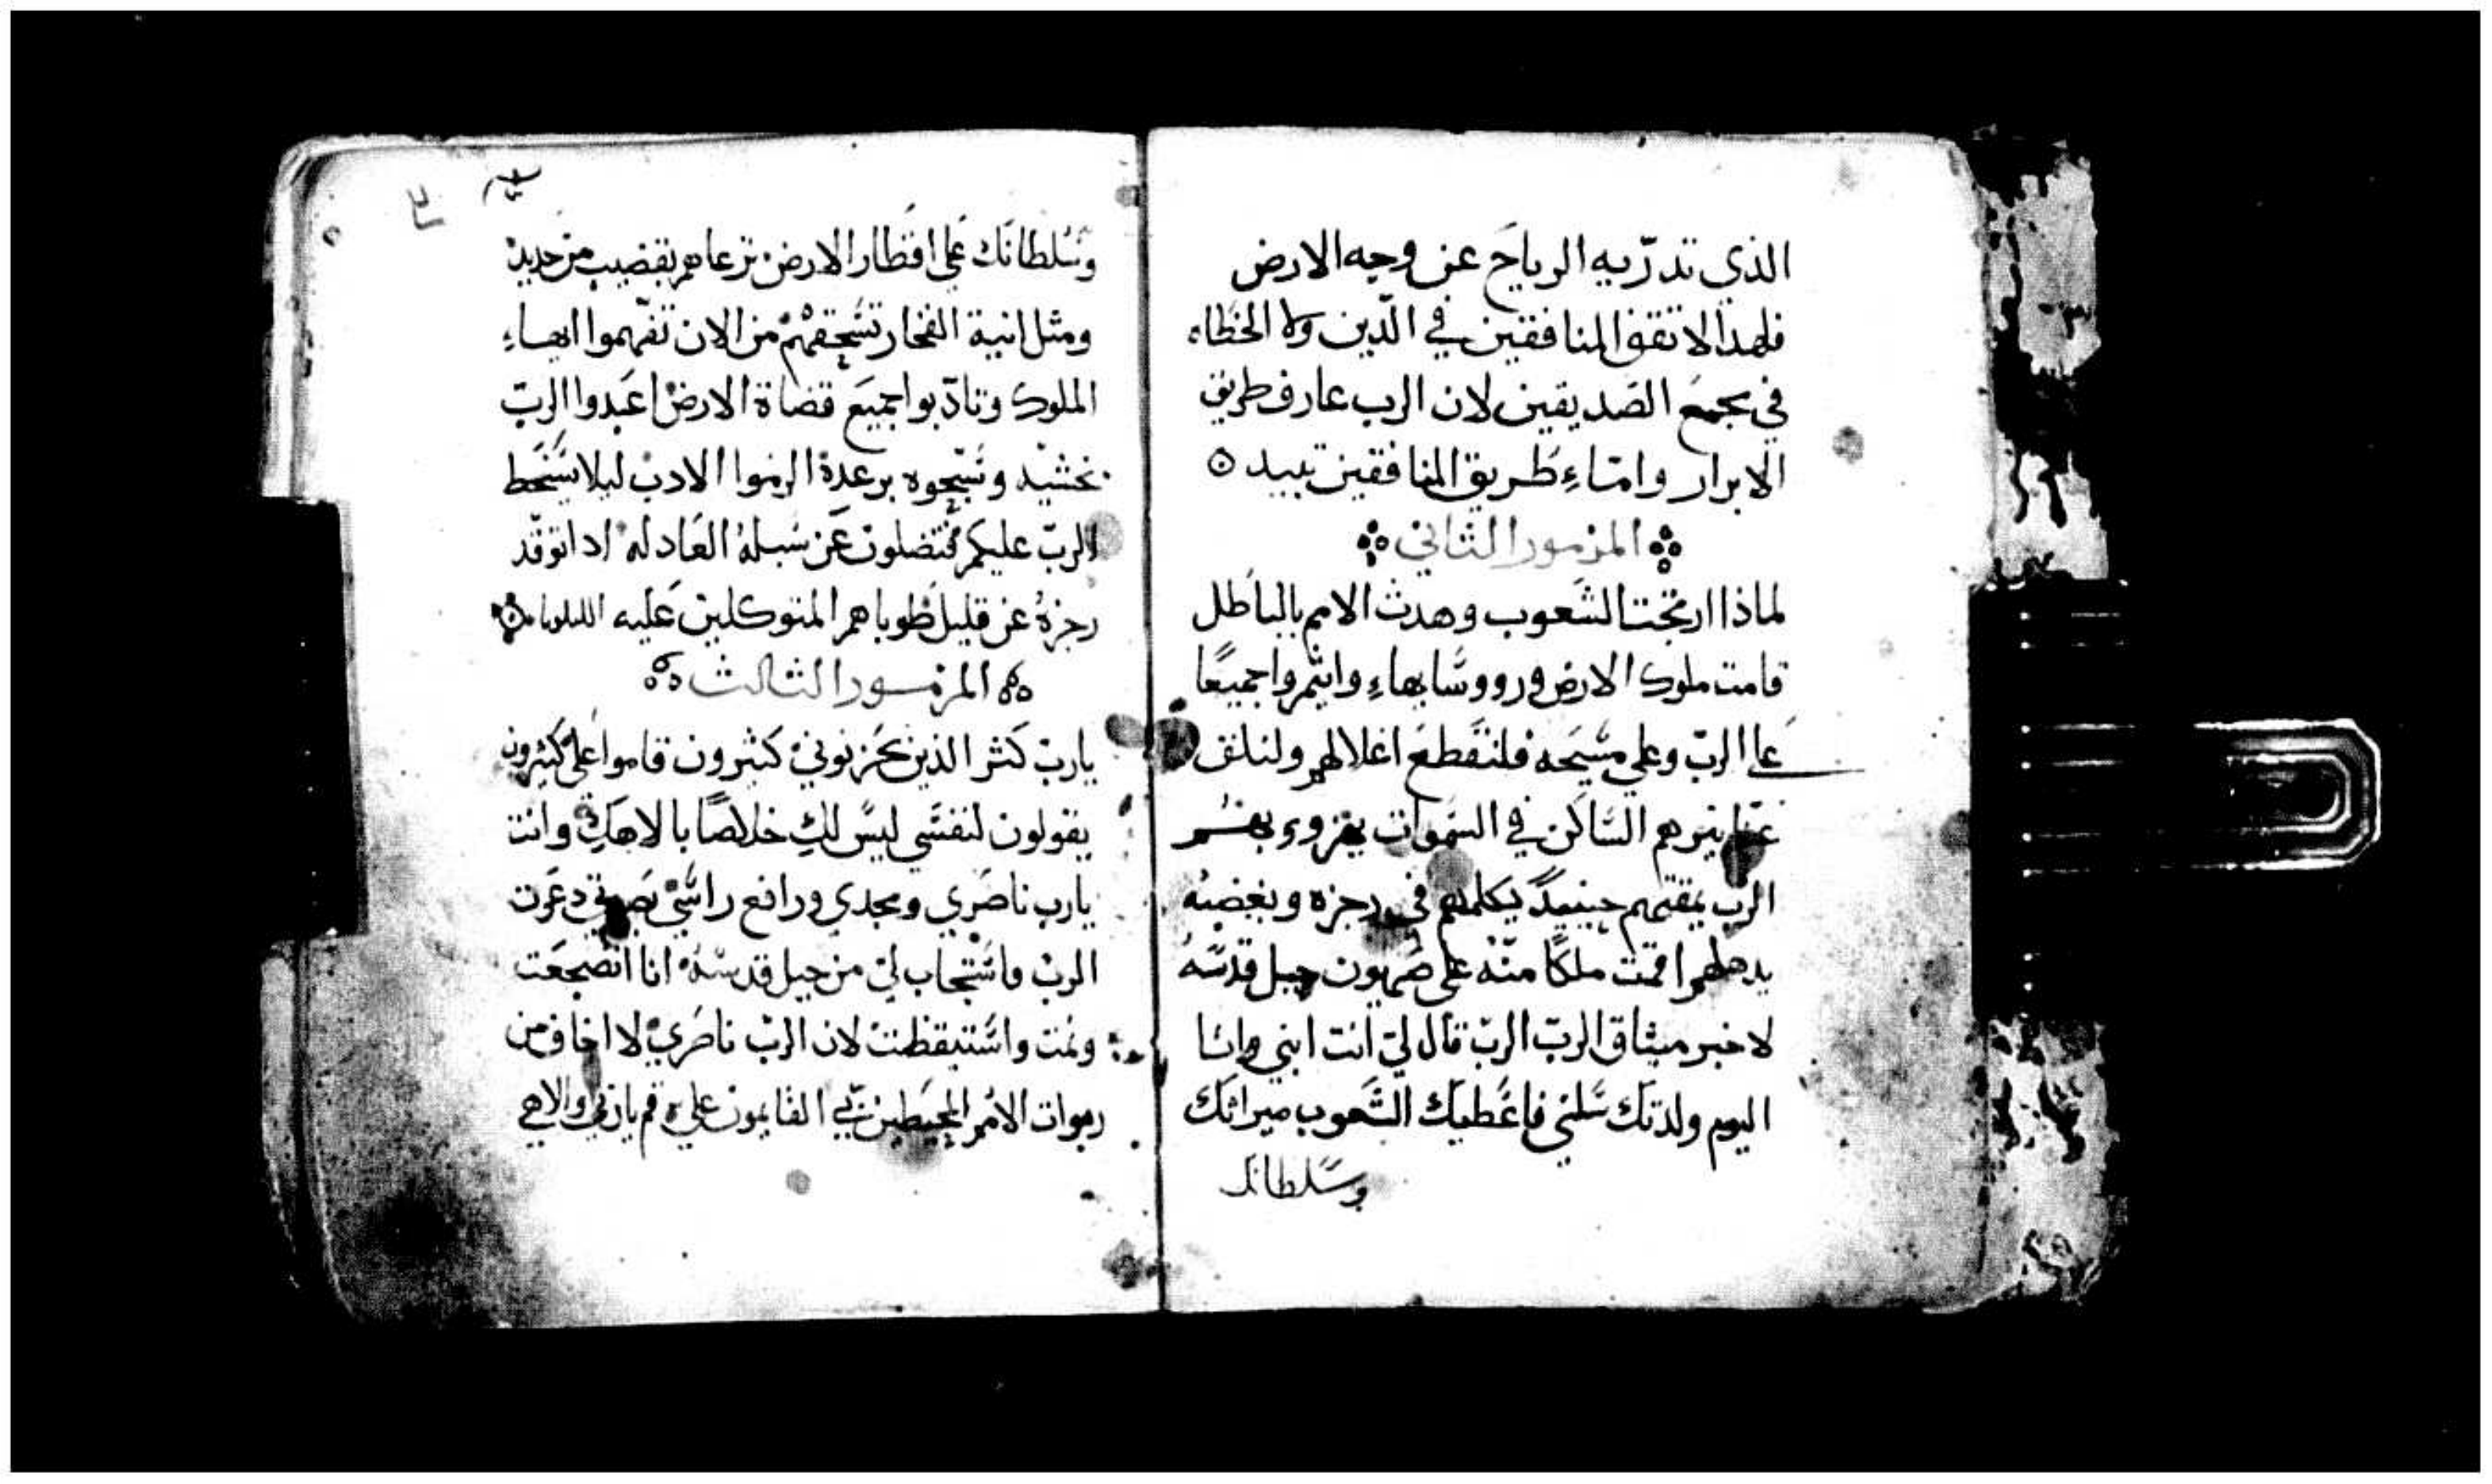 الذي تدرّيه الرياح عن وجه الارض
فلهدا لا تقف المنافقين في الدّين ولا الخطاه
في مجمع الصديقين لان الرب عارف طريق
الابرار وامّاء طريق المنافقين تبيد
المزمور الثاني
لماذا ارتجت الشعوب وهدت الامم بالباطل
قامت ملوك الارض ورووسابهاء وايتمروا جميعًا
على الربّ وعلى مسيحه فلنقطع اغلالهم ولنلق
عنّا نيرهم الساكن في السموات يهزوء بهم
الربّ يمقتهم حينيدً يكلمهم في رجزه وبغضبه
يدهلهم اقمت ملكًا منه على صهيون جبل قدسه
لاخبر ميثاق الربّ الربّ قال لي انت ابني وانا
اليوم ولدتك سلني فاعطيك الشعوب ميراثك
وسلطانك
وسلطانك على اقطار الارض ترعاهم بقضيب من حديد
ومثل انية الفخار تسحقهم من الان تفهموا ايهاء
الملوك وتادّبوا جميع قضاة الارض اعبدوا الربّ
بخشيه وسبحوه برعدة الزموا الادب ليلا يسخط
الربّ عليكم فتضلون عن سبله العادله ادا توقّد
رجزه عن قليل طوباهم المتوكلين عليه الليلويا
المزمور الثالث
يارب كثر الذين يحزنوني كثيرون قاموا علي كثيرون
يقولون لنفسي ليس لك خلاصًا بالاهك وانت
يارب ناصري ومجدي ورافع راسي بصوتي دعوت
الربّ فاستجاب لي من جبل قدسه انا اضجعت
ونمت واستيقظت لان الربّ ناصري لا اخاف من
ربوات الامم المحيطين بي القايمون علي قم يارب والاهي